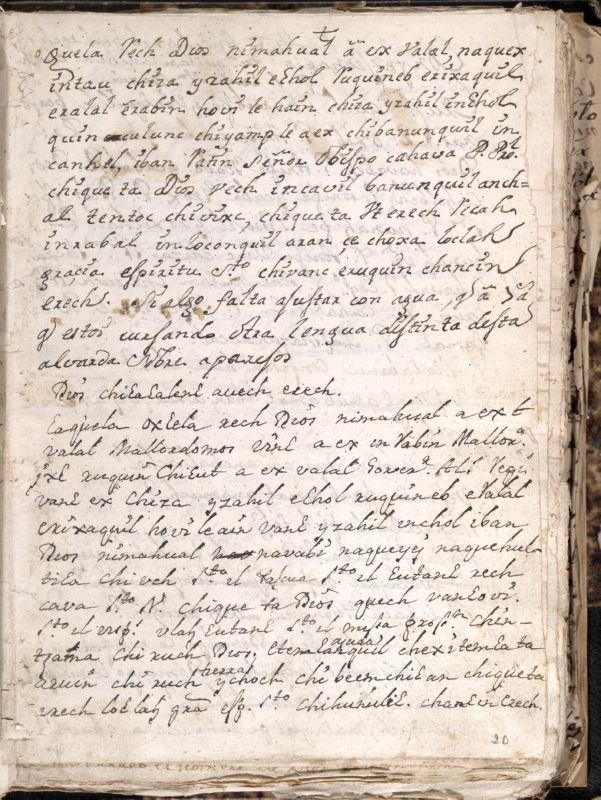 quela Vech Dios nimahual ā ex Valal, naquex
intau chira yzahil echol Vuquineb erixaquil
eralal erabin hovi le hain chira yzahil inchol
quin culunc chiyample aex chibanunquil in
canhel, iban Vatin Señor Obispo cahava P. Pro.l
chique ta Dios Vech incavil banunquil anch=
al tentoc chivixc, chique ta Vt erech Vicah
inrabal inloconquil aran, ce choxa loclah
gracia espiritu S.to chivanc eruquin chancin
erech. Si algo falta ajustar con agua,
q estoi cursando otra lengua distinta desta
alvarda sobre aparejos
Dios chicacalenc avech erech.
Caquela oxlela rech Dios nimahual a ex t
valal Mallordomos vinc a ex in Vabin Mallor.a
ixc ruquin Chicut a ex valal Gover.r Ali Regi.
vanc ex chiza yzahil echol ruquineb elalal
erixaquil hovi le ain vanc yzahil inchol iban
Dios nimahual navabi naqueyej naquehul
ticla chi vch S.to il S.to il Eutanc rech
cava S.to N. chique ta Dios quech vancovi.
S.to il visp. vlah Eutanc S.to il misa pross.n chin-
tzama chi ruch Dios, etenlanquil ayuda chexitemca ta
aruin chi ruch tierra ychoch chi beemchican chiqueta
erech loclah gra esp. S.to chihunulic. chanc in Erech.
20